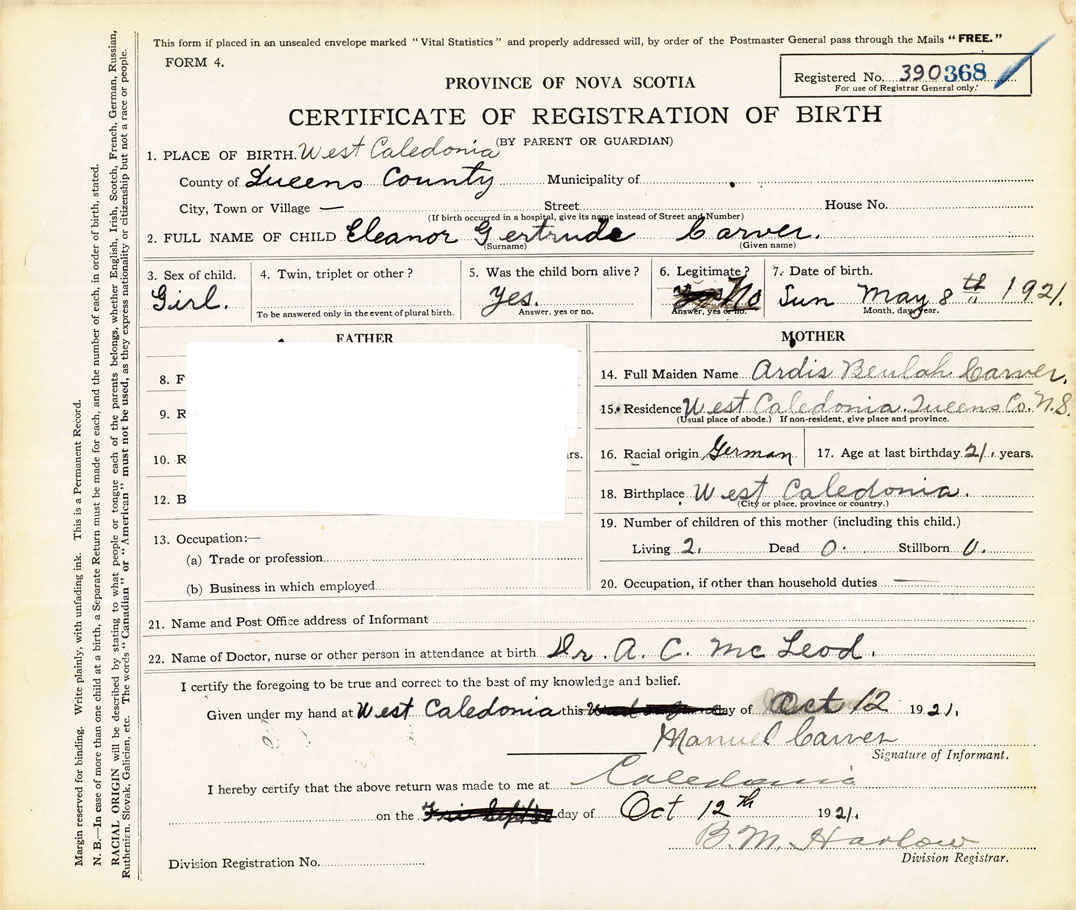 This form if placed in an unsealed envelope marked "Vital Statistics" and properly addressed will, by order of the Postmaster General pass through the Mails "FREE."
FORM 4.
Registered No. 390368
For use of Registrar General only.
PROVINCE OF NOVA SCOTIA
CERTIFICATE OF REGISTRATION OF BIRTH
(BY PARENT OR GUARDIAN)
1. PLACE OF BIRTH. West Caledonia
County of Queens County Municipality of
City, Town or Village — Street House No.
(If birth occurred in a hospital, give its name instead of Street and Number)
2. FULL NAME OF CHILD Eleanor Gertrude Carver.
(Surname) (Given name)
3. Sex of child. 4. Twin, triplet or other? 5. Was the child born alive? 6. Legitimate? 7. Date of birth.
Girl. Yes. No Sun May 8th 1921.
To be answered only in the event of plural birth. Answer, yes or no. Answer, yes or no. Month, day, year.
FATHER
8. F
9. R
10. R
rs.
12. B
13. Occupation:—
(a) Trade or profession
(b) Business in which employed
MOTHER
14. Full Maiden Name Ardis Beulah Carver.
15. Residence West Caledonia. Queens Co. N.S.
(Usual place of abode.) If non-resident, give place and province.
16. Racial origin German 17. Age at last birthday 21. years.
18. Birthplace West Caledonia.
(City or place, province or country.)
19. Number of children of this mother (including this child.)
Living 2. Dead 0. Stillborn 0.
20. Occupation, if other than household duties —
21. Name and Post Office address of Informant
22. Name of Doctor, nurse or other person in attendance at birth Dr. A. C. McLeod.
I certify the foregoing to be true and correct to the best of my knowledge and belief.
Given under my hand at West Caledonia this day of Oct 12 1921.
Manuel Carver
Signature of Informant.
I hereby certify that the above return was made to me at Caledonia
on the day of Oct 12th 1921.
B. M. Harlow
Division Registrar.
Division Registration No.
Margin reserved for binding. Write plainly, with unfading ink. This is a Permanent Record.
N. B.—In case of more than one child at a birth, a Separate Return must be made for each, and the number of each, in order of birth, stated.
RACIAL ORIGIN will be described by stating to what people or tongue each of the parents belongs, whether English, Irish, Scotch, French, German, Russian,
Ruthenian, Slovak, Galician, etc. The words "Canadian" or "American" must not be used, as they express nationality or citizenship but not a race or people.